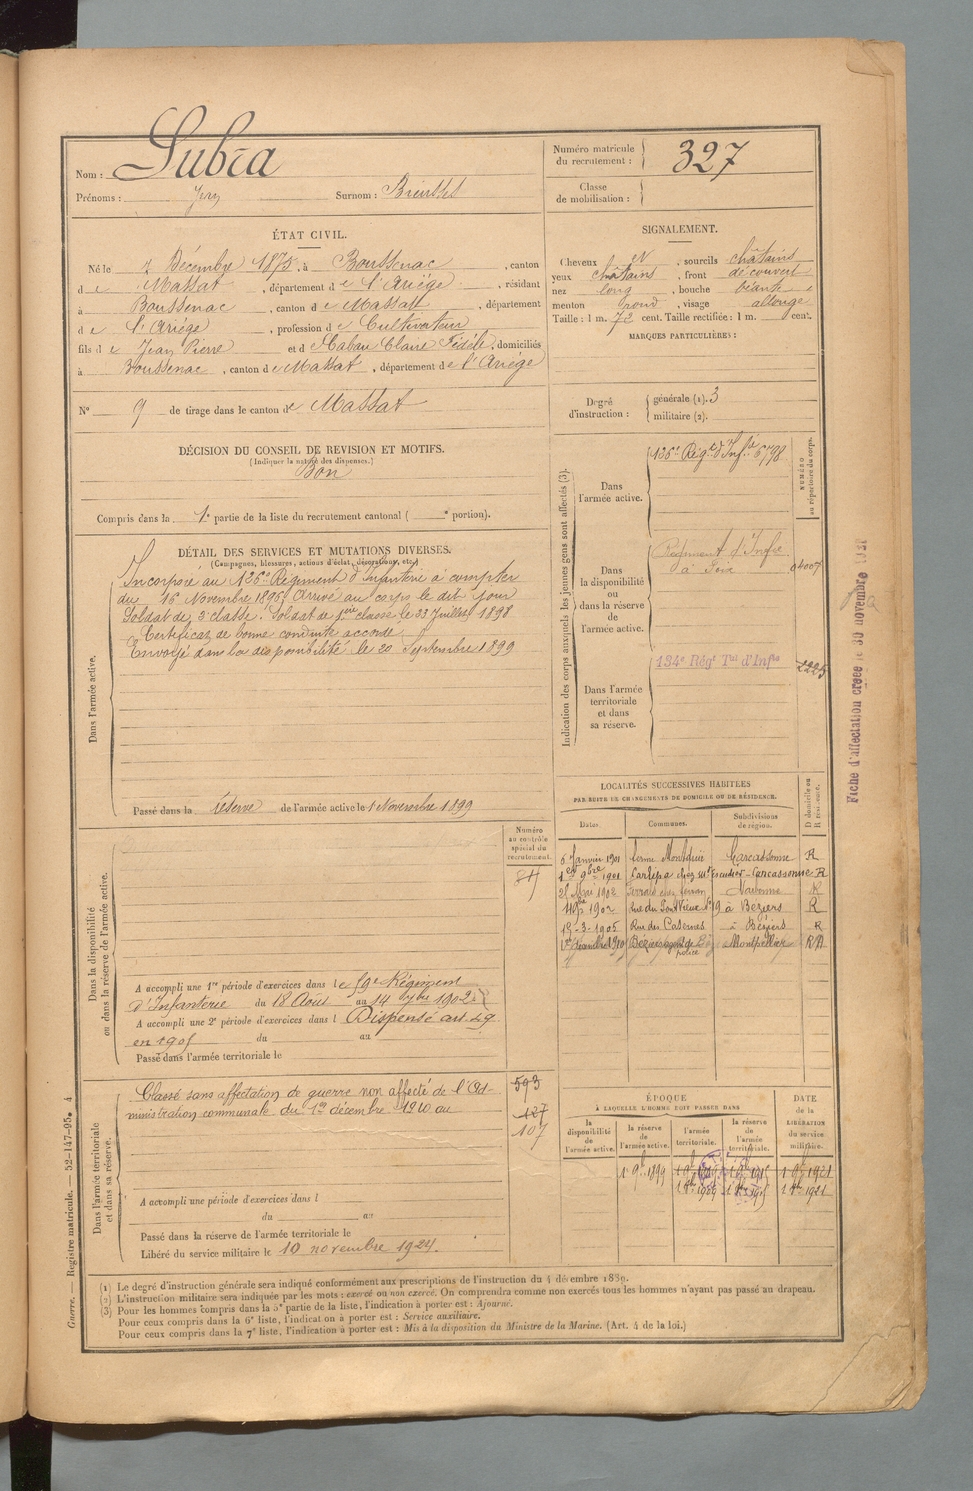 Nom : Lubia
Prénoms : Jean Surnom :
Numéro matricule du recrutement : 327
Classe de mobilisation :
ÉTAT CIVIL.
Né le Décembre 1875, à Boussenac, canton
de Massat, département de l'Ariége, résidant
à Boussenac, canton de Massat, département
de l'Ariége, profession de Cultivateur
fils de Jean Pierre et d Claire Fidèle, domiciliés
à Boussenac, canton de Massat, département de l'Ariége
N° 9 de tirage dans le canton de Massat
SIGNALEMENT.
Cheveux et, sourcils châtains
yeux châtains, front découvert
nez long, bouche
menton rond, visage allongé
Taille : 1 m. 72 cent. Taille rectifiée : 1 m. cent.
MARQUES PARTICULIÈRES :
Degré d'instruction :
générale (1). 3
militaire (2).
DÉCISION DU CONSEIL DE REVISION ET MOTIFS.
(Indiquer la nature des dispenses.)
Bon
Compris dans la 1e partie de la liste du recrutement cantonal ( e portion).
DÉTAIL DES SERVICES ET MUTATIONS DIVERSES.
(Campagnes, blessures, actions d'éclat, décorations, etc.)
Dans l'armée active.
Incorporé au 126e Régiment d'Infanterie à compter
du 16 Novembre 1896 Arrivé au corps le dit jour
Soldat de 2e classe. Soldat de 1ère classe le Juillet 1898
Certificat de bonne conduite accordé
Envoyé dans la disponibilité le 20 Septembre 1899
Passé dans la réserve de l'armée active le 1 Novembre 1899
Indication des corps auxquels les jeunes gens sont affectés (3).
NUMÉRO au répertoire du corps.
Dans l'armée active.
126e Rég. d'Inf.ie
Dans la disponibilité ou dans la réserve de l'armée active.
Régiment d'Infie
à Foix
04007
Dans l'armée territoriale et dans sa réserve.
134e Régt Tal d'Infie
2225
Fiche d'affectation créée le 30 novembre
LOCALITÉS SUCCESSIVES HABITÉES
PAR SUITE DE CHANGEMENTS DE DOMICILE OU DE RÉSIDENCE.
Dates. Communes. Subdivisions de région. D domicile ou R résidence.
6 Janvier 1901 ferme Carcassonne R
1er 9bre 1901 Carlipa chez Mr Escudier - Carcassonne R
Mai 1902 Narbonne R
1902 Rue du Pont Vieux N° 19 à Béziers R
15-3-1905 Rue des Casernes à Béziers R
1er décembre 1910 Béziers agent de police Montpellier
Numéro au contrôle spécial du recrutement.
Dans la disponibilité ou dans la réserve de l'armée active.
A accompli une 1re période d'exercices dans le Régiment
d'Infanterie du 18 Août au 14 1902
A accompli une 2e période d'exercices dans l Dispensé art. 29
en 1905 du au
Passé dans l'armée territoriale le
Dans l'armée territoriale et dans sa réserve.
Classé sans affectation de guerre non affecté de l'Ad-
ministration communale du 1er décembre 1910 au
593
127
107
A accompli une période d'exercices dans l
du au
Passé dans la réserve de l'armée territoriale le
Libéré du service militaire le 10 novembre 1924.
ÉPOQUE
A LAQUELLE L'HOMME DOIT PASSER DANS
DATE de la LIBÉRATION du service militaire.
la disponibilité de l'armée active.
la réserve de l'armée active.
l'armée territoriale.
la réserve de l'armée territoriale.
1 9bre 1899
(1) Le degré d'instruction générale sera indiqué conformément aux prescriptions de l'instruction du 4 décembre 1889.
(2) L'instruction militaire sera indiquée par les mots : exercé ou non exercé. On comprendra comme non exercés tous les hommes n'ayant pas passé au drapeau.
(3) Pour les hommes compris dans la 5e partie de la liste, l'indication à porter est : Ajourné.
Pour ceux compris dans la 6e liste, l'indication à porter est : Service auxiliaire.
Pour ceux compris dans la 7e liste, l'indication à porter est : Mis à la disposition du Ministre de la Marine. (Art. 4 de la loi.)
Guerre. — Registre matricule. — 52-147-95. 4